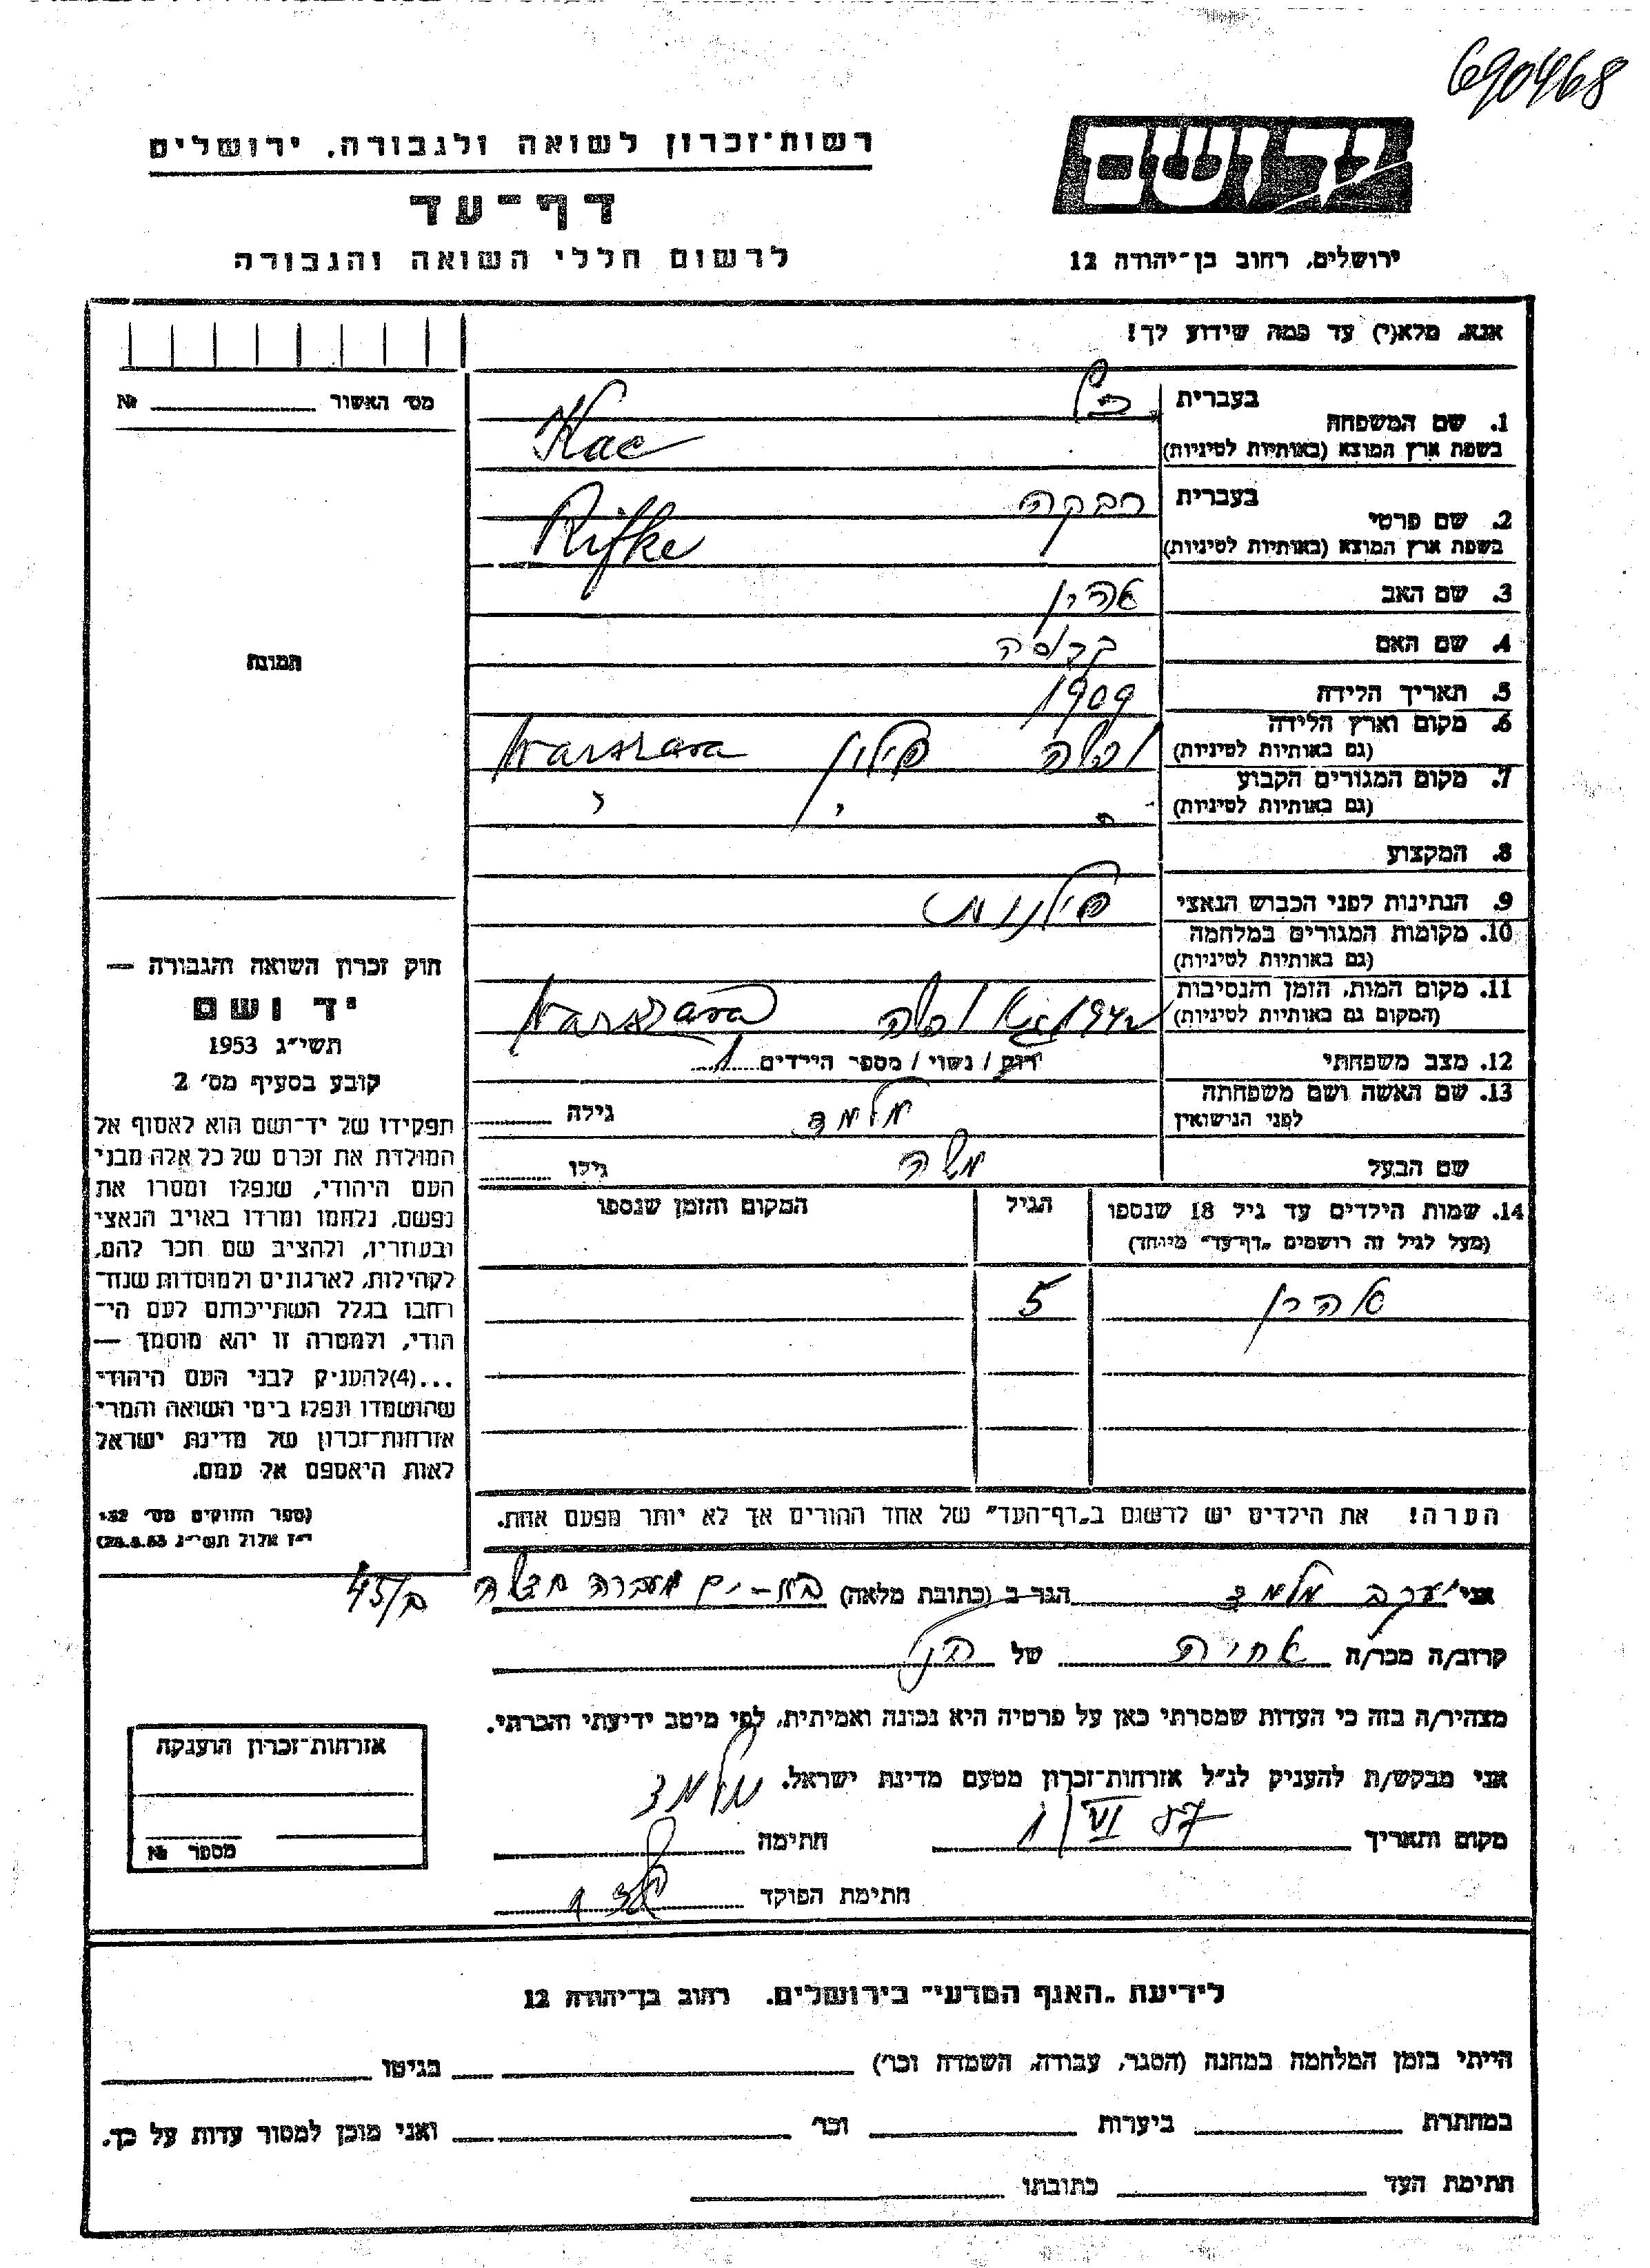 690468
יד ושם
רשות־זכרון לשואה ולגבורה, ירושלים
דף־עד
לרשום חללי השואה והגבורה
ירושלים, רחוב בן־יהודה 12
אנא, מלא(י) עד כמה שידוע לך!
מס׳ האשור № 
1. שם המשפחה בעברית כץ
בשפת ארץ המוצא (באותיות לטיניות) Kac
2. שם פרטי בעברית רבקה
בשפת ארץ המוצא (באותיות לטיניות) Rifke
3. שם האב אהרן
4. שם האם
5. תאריך הלידה 1909
6. מקום וארץ הלידה (גם באותיות לטיניות) ורשה פולין Warszawa
7. מקום המגורים הקבוע (גם באותיות לטיניות) " " "
8. המקצוע
9. הנתינות לפני הכבוש הנאצי פולנית
10. מקומות המגורים במלחמה (גם באותיות לטיניות)
11. מקום המות, הזמן והנסיבות (המקום גם באותיות לטיניות) 1942 ורשה Warszawa
12. מצב משפחתי רווק / נשוי / מספר הילדים 1
13. שם האשה ושם משפחתה לפני הנישואין מלמד גילה
שם הבעל משה גילו
14. שמות הילדים עד גיל 18 שנספו הגיל המקום והזמן שנספו
(מעל לגיל זה רושמים „דף־עד״ מיוחד)
אהרן 5
הערה! את הילדים יש לרשום ב„דף־העד״ של אחד ההורים אך לא יותר מפעם אחת.
התמונה
חוק זכרון השואה והגבורה —
יד ושם
תשי״ג 1953
קובע בסעיף מס׳ 2
תפקידו של יד־ושם הוא לאסוף אל
המולדת את זכרם של כל אלה מבני
העם היהודי, שנפלו ומסרו את
נפשם, נלחמו ומרדו באויב הנאצי
ובעוזריו, ולהציב שם וזכר להם,
לקהילות, לארגונים ולמוסדות שנח־
רחבו בגלל השתייכותם לעם הי־
הודי, ולמטרה זו יהא מוסמך —
...(4)להעניק לבני העם היהודי
שהושמדו ונפלו בימי השואה והמרי
אזרחות־זכרון של מדינת ישראל
לאות היאספם אל עמם.
(ספר החוקים מס׳ 132,
י״ז אלול תשי״ג 28.8.53)
אני יעקב מלמד הגר ב (כתובת מלאה) בת־ים מעברה ב/45
קרוב/ה מכר/ה אחות של
מצהיר/ה בזה כי העדות שמסרתי כאן על פרטיה היא נכונה ואמיתית, לפי מיטב ידיעתי והכרתי.
אני מבקש/ת להעניק לנ״ל אזרחות־זכרון מטעם מדינת ישראל.
מקום ותאריך 1/VI 57 חתימה מלמד
חתימת הפוקד
אזרחות־זכרון הוענקה
מספר №
לידיעת „האגף המדעי״ בירושלים. רחוב בן־יהודה 12
הייתי בזמן המלחמה במחנה (הסגר, עבודה, השמדה וכר׳) בגיטו
במחתרת ביערות וכר׳ ואני מוכן למסור עדות על כך.
חתימת העד כתובתו